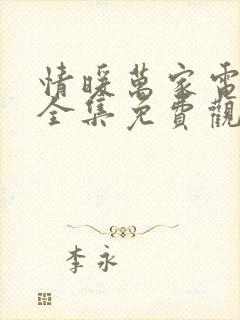 情暖萬家電
全集免費觀
李永